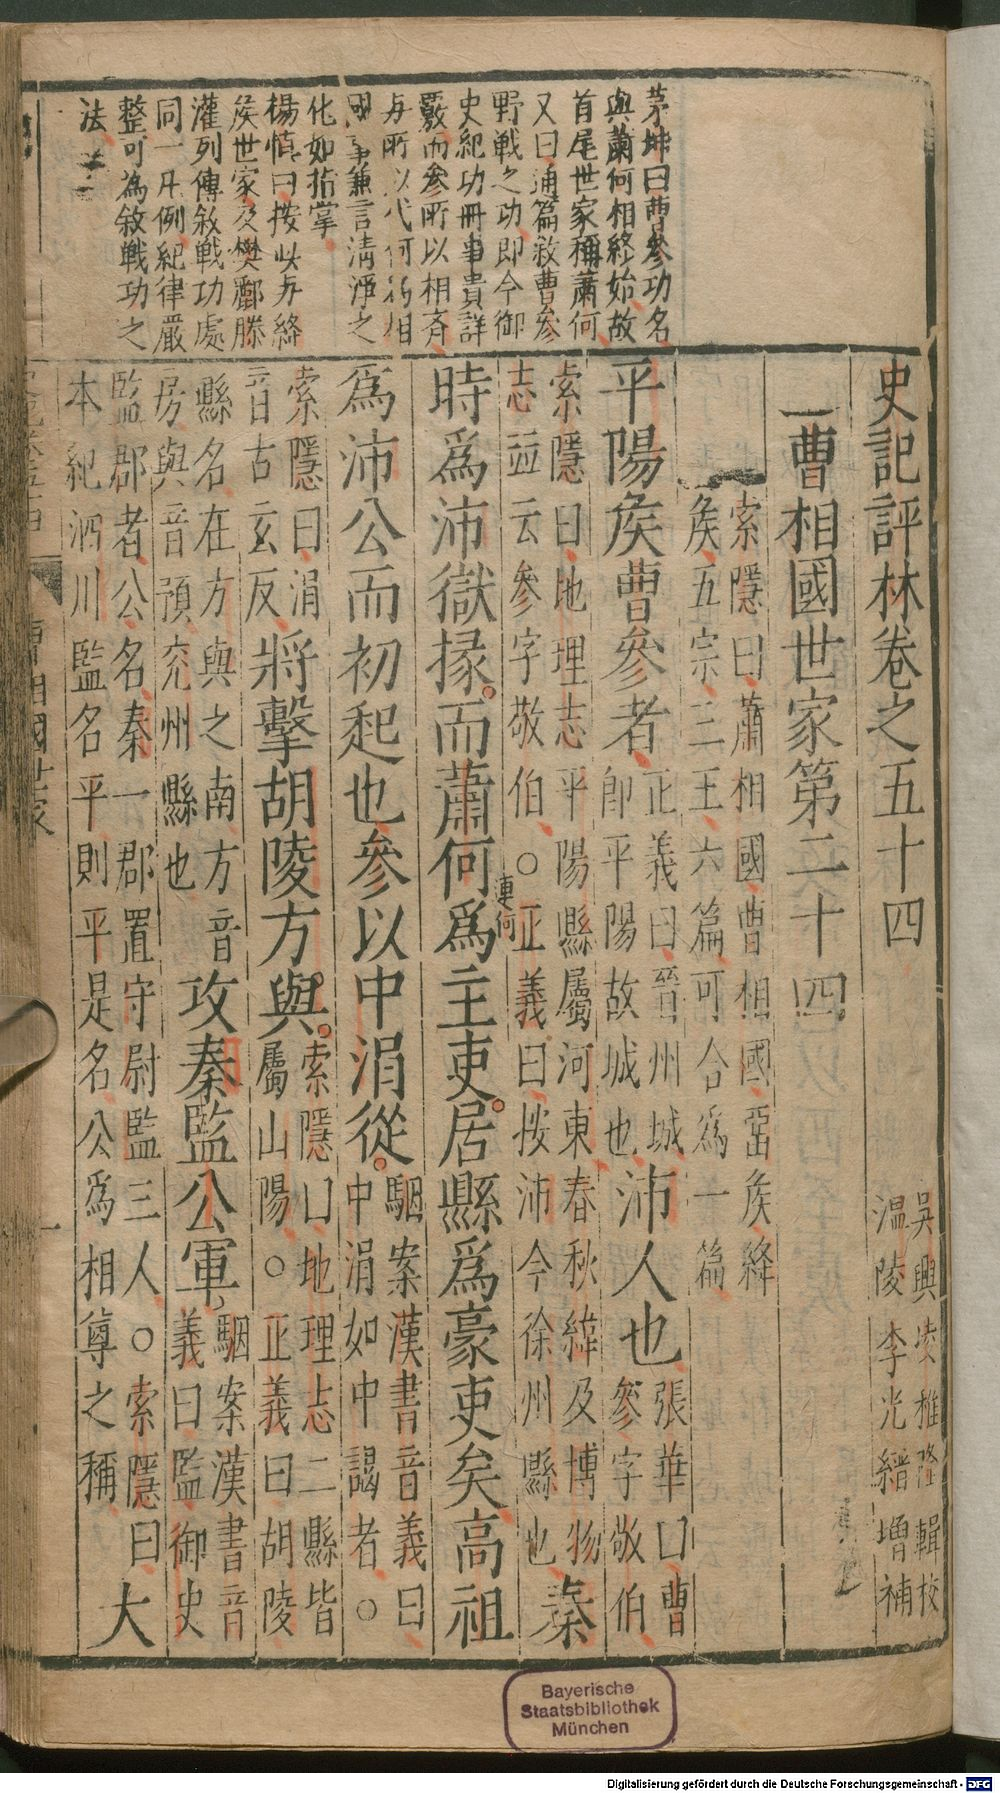 茅坤曰曹參功名
與蕭何相終始故
首尾世家稱蕭何
又曰通篇敘曹參
野戰之功即今御
史紀功冊事貴詳
覈而參所以相齊
與所以代何為相
國事兼言清淨之
化如指掌
楊慎曰按此與絳
侯世家及樊酈滕
灌列傳敘戰功處
同一凡例紀律嚴
整可為敘戰功之
法
史記評林卷之五十四
吳興凌稚隆輯校
溫陵李光縉增補
曹相國世家第二十四
索隱曰蕭相國曹相國留矦絳
矦五宗三王六篇可合爲一篇
平陽矦曹參者正義曰晉州城即平陽故城也沛人也張華曰曹參字敬伯
索隱曰地理志平陽縣屬河東春秋緯及博物志並云參字敬伯○正義曰按沛今徐州縣也秦
時爲沛獄掾而蕭何爲主吏居縣爲豪吏矣高祖
連何
爲沛公而初起也參以中涓從駰案漢書音義曰中涓如中謁者○
索隱曰涓音古玄反將擊胡陵方與索隱曰地理志二縣皆屬山陽○正義曰胡陵
縣名在方與之南方音房與音預兗州縣也攻秦監公軍駰案漢書音義曰監御史
監郡者公名秦一郡置守尉監三人○索隱曰本紀泗川監名平則平是名公爲相尊之稱大
曹相國世家
一
Bayerische
Staatsbibliothek
München
Digitalisierung gefördert durch die Deutsche Forschungsgemeinschaft - DFG